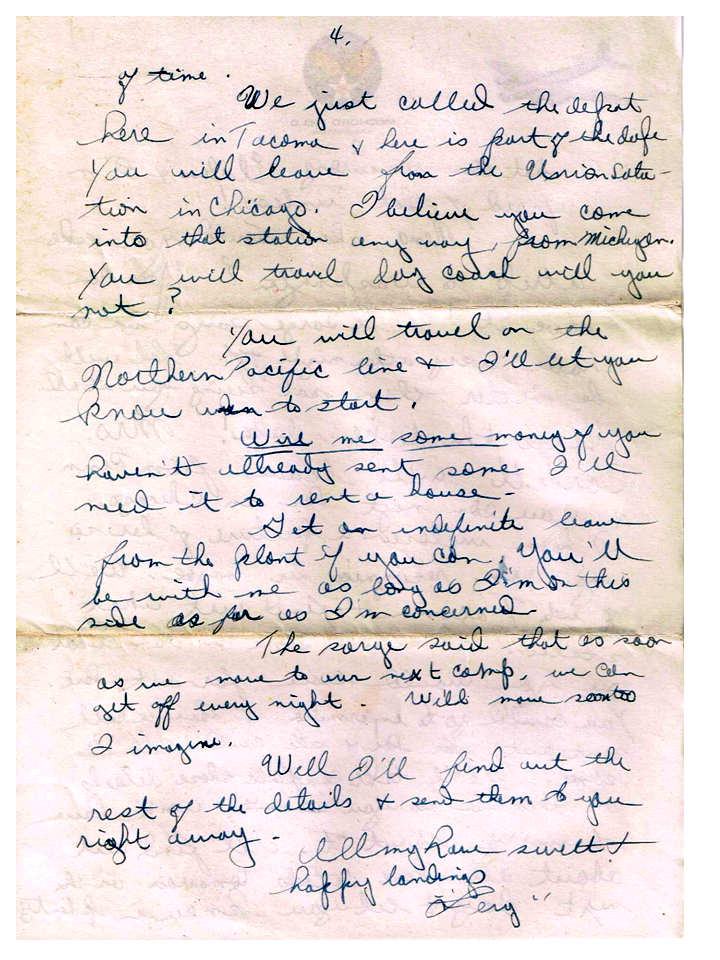 4.
of time.
We just called the depot
here in Tacoma & here is part of the dope
You will leave from the Union Sata-
tion in Chicago. I believe you come
into that station any way, from Michigan.
You will travel day coach will you
not?
You will travel on the
Northern Pacific line & I'll let you
know when to start.
Wire me some money if you
haven't already sent some I'll
need it to rent a house-
Get an indefinite leave
from the plant if you can, You'll
be with me as long as I'm on this
side as far as I'm concerned
The sarge said that as soon
as we move to our next camp, we can
get off every night. Will move soon too
I imagine.
Well I'll find out the
rest of the details & send them to you
right away-
All my love sweet &
happy landings